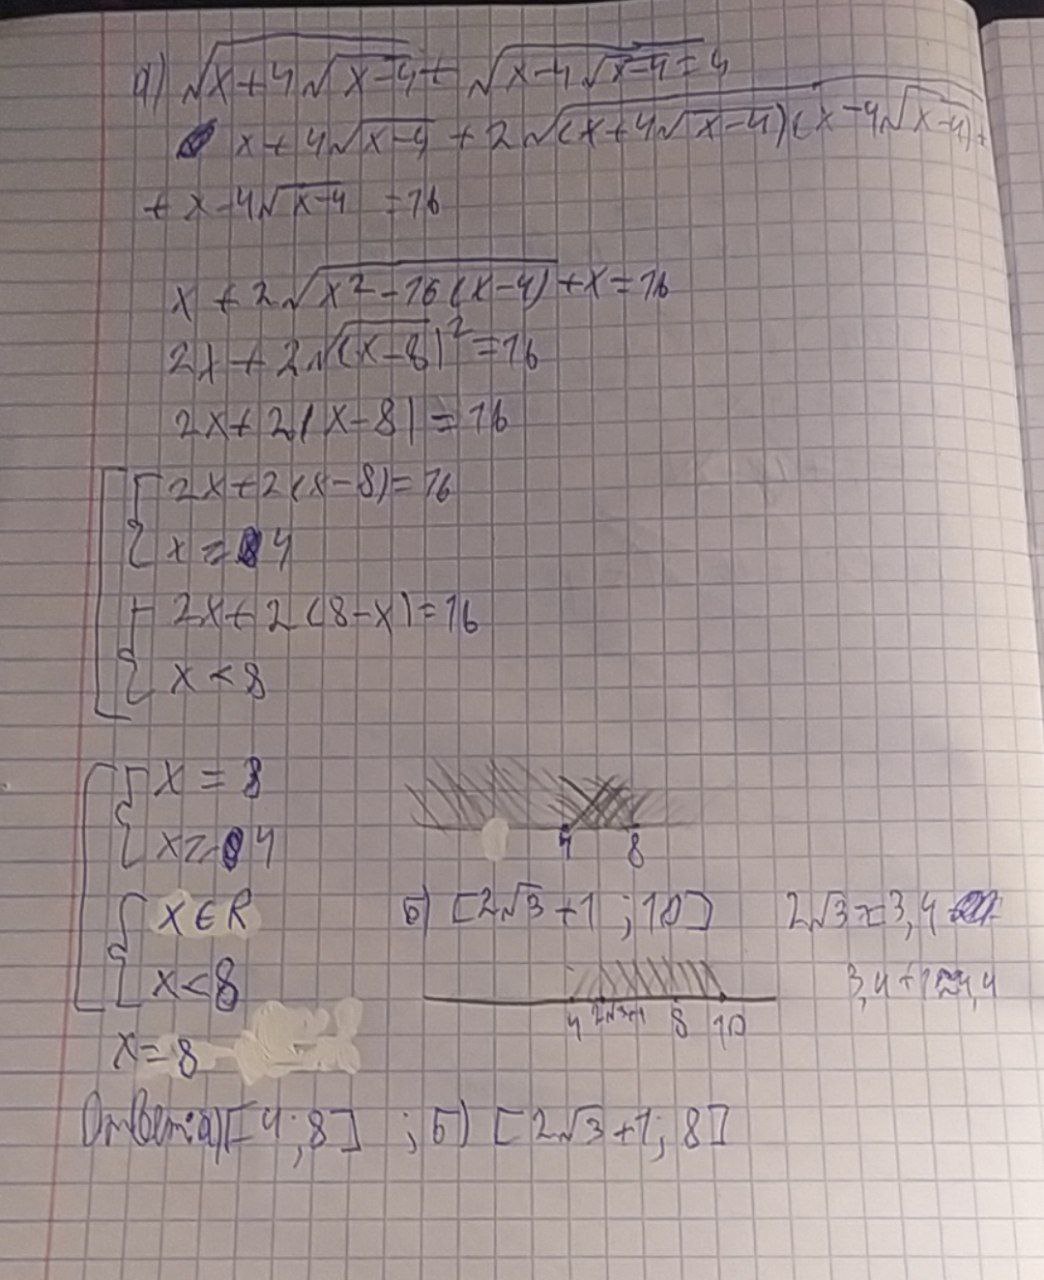 а) √(x+4√(x-4)) + √(x-4√(x-4)) = 4
x+4√(x-4) + 2√((x+4√(x-4))(x-4√(x-4))) +
+ x-4√(x-4) = 16
x + 2√(x²-16(x-4)) + x = 16
2x + 2√(x-8)² = 16
2x+2|x-8| = 16
2x+2(x-8)=16
x ≥ 4
2x+2(8-x)=16
x < 8
x = 8
x ≥ 4
4 8
x ∈ R
б) [2√3+1 ; 10] 2√3≈3,4
x<8
3,4+1≈4,4
4 2√3+1 8 10
x=8
Ответ: а) [4;8] ; б) [2√3+1; 8]